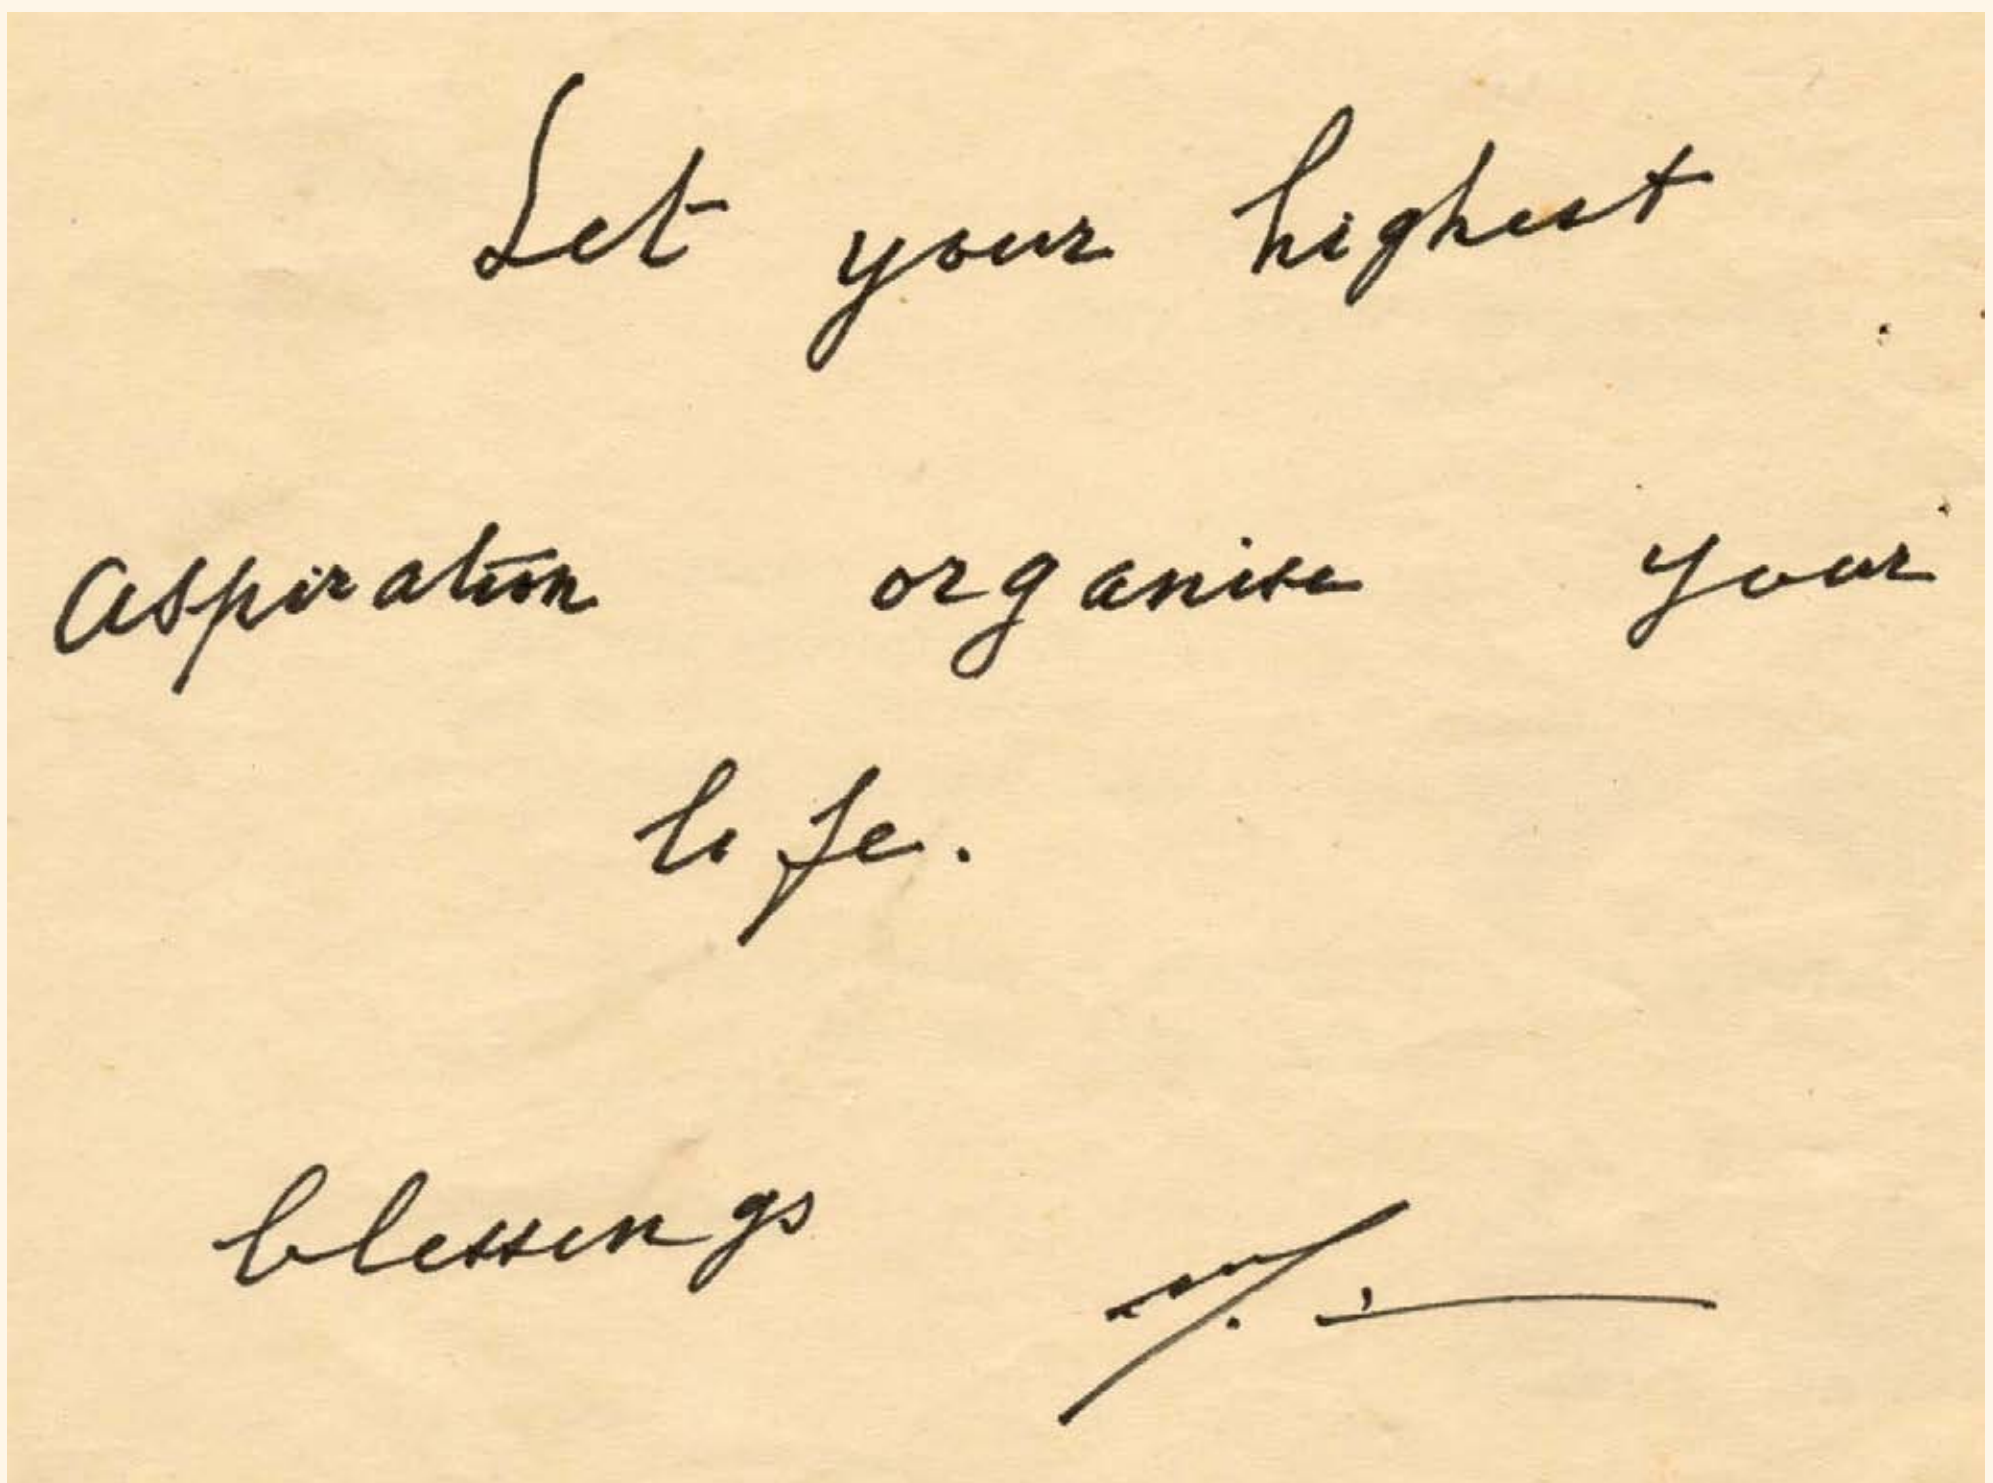 Let your highest
aspiration organise your
life.
blessings